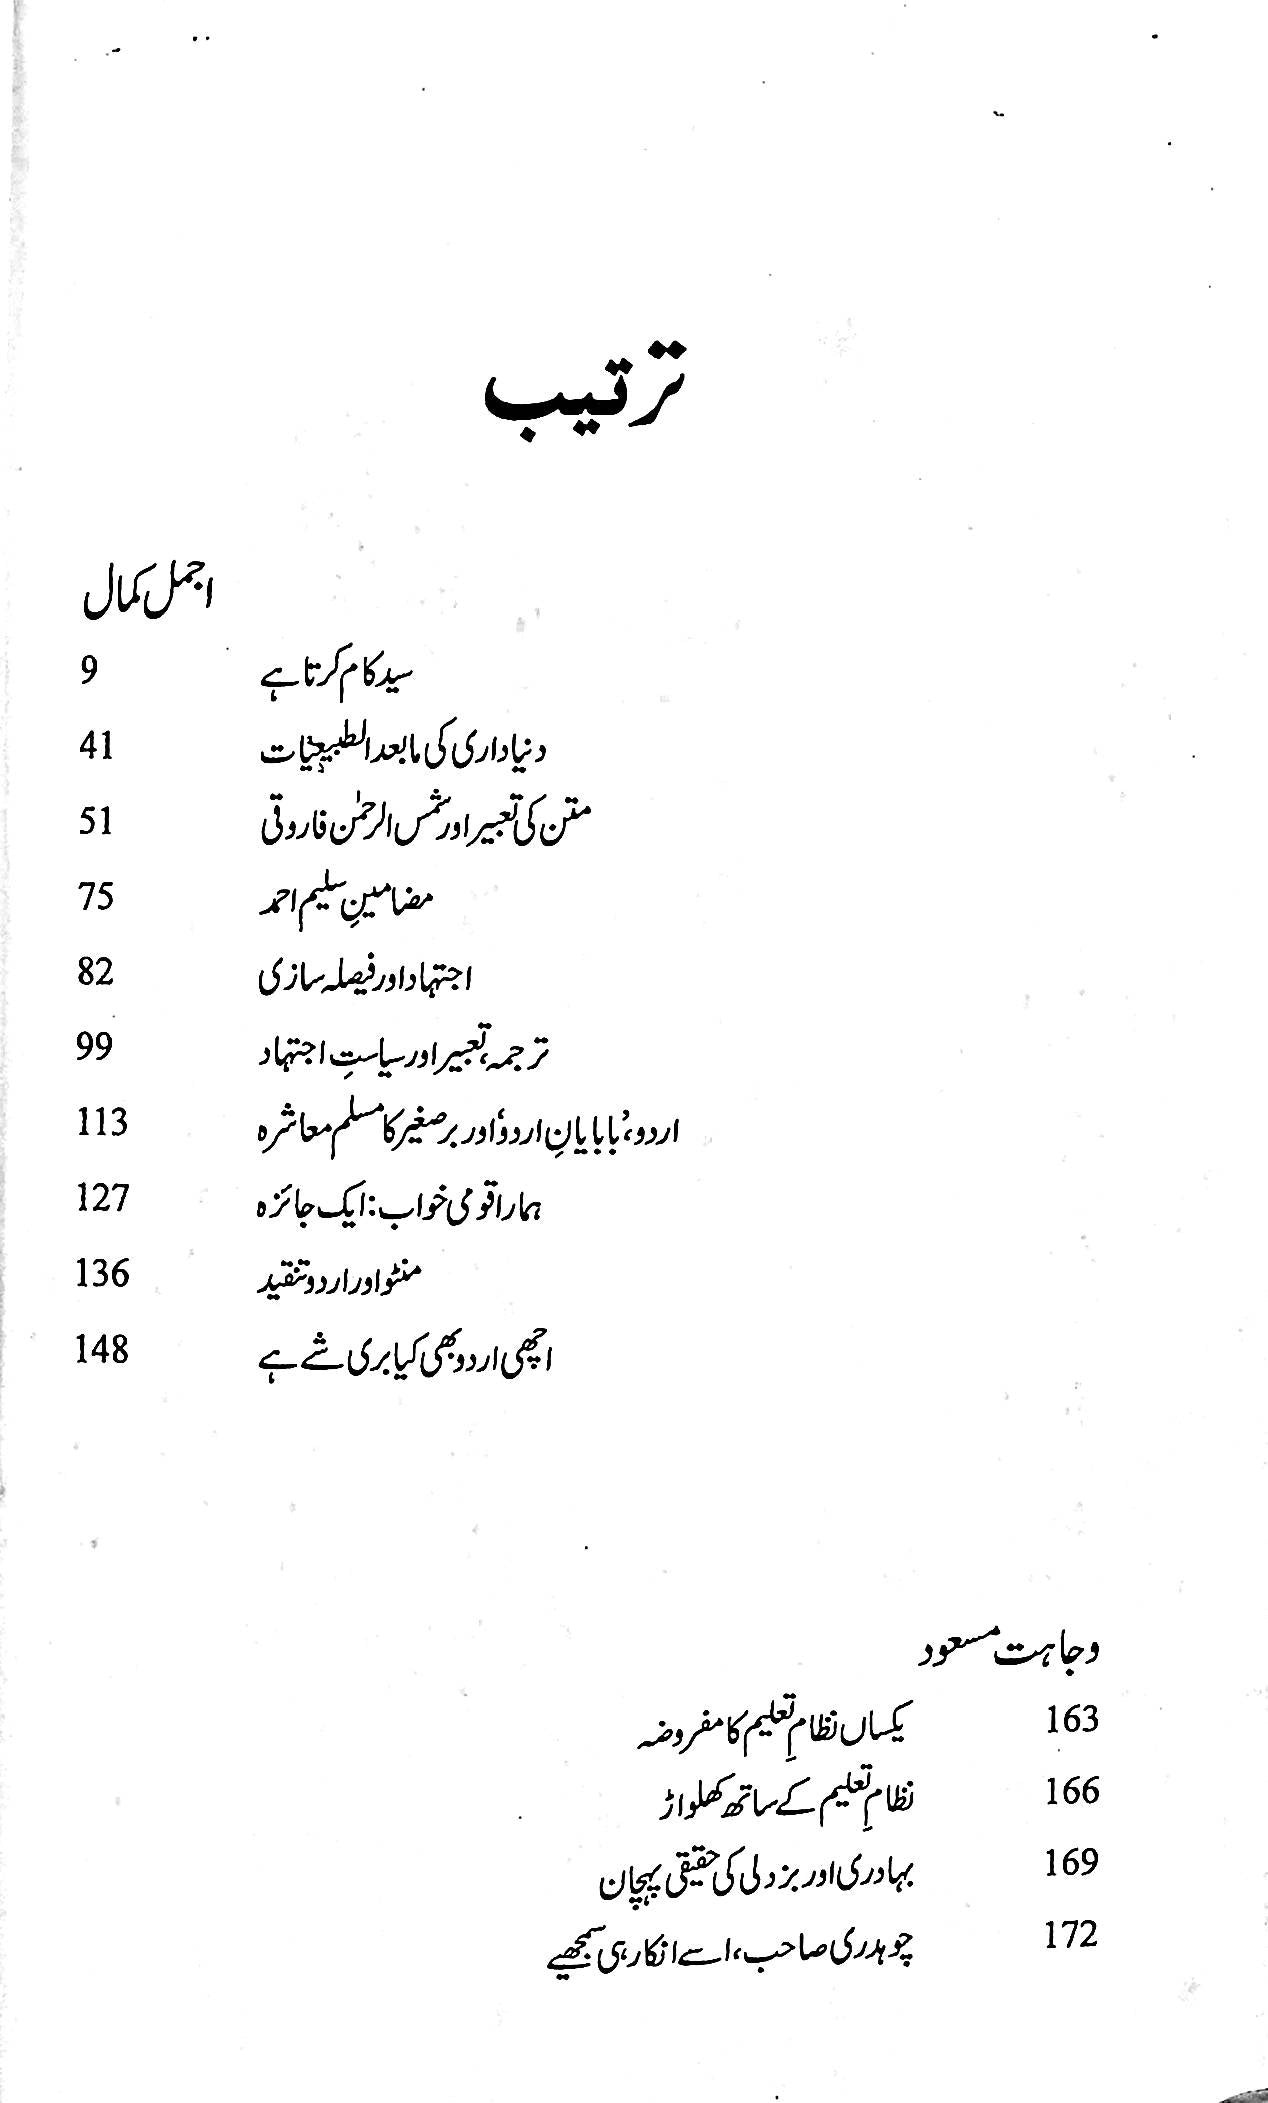 ترتیب
اجمل کمال
سید کام کرتا ہے 9
دنیاداری کی مابعدالطبیعیات 41
متن کی تعبیر اور شمس الرحمٰن فاروقی 51
مضامینِ سلیم احمد 75
اجتہاد اور فیصلہ سازی 82
ترجمہ، تعبیر اور سیاستِ اجتہاد 99
اردو، ’بابایانِ اردو‘ اور برصغیر کا مسلم معاشرہ 113
ہمارا قومی خواب: ایک جائزہ 127
منٹو اور اردو تنقید 136
اچھی اردو بھی کیا بری شے ہے 148
وجاہت مسعود
163 یکساں نظامِ تعلیم کا مفروضہ
166 نظامِ تعلیم کے ساتھ کھلواڑ
169 بہادری اور بزدلی کی حقیقی پہچان
172 چوہدری صاحب، اسے انکار ہی سمجھیے